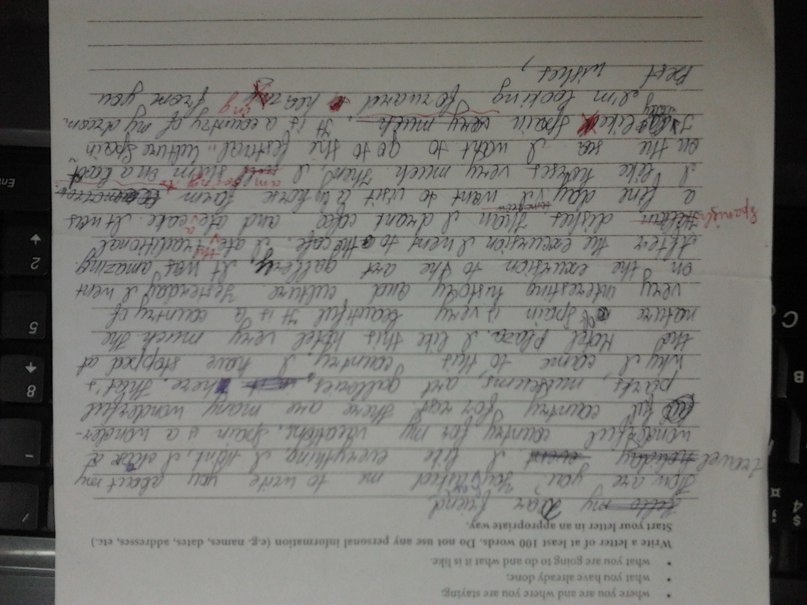 • where you are and where you are staying;
• what you have already done;
• what you are going to do and what it is like.
Write a letter of at least 100 words. Do not use any personal information (e.g. names, dates, addresses, etc.)
Start your letter in an appropriate way.
Hello my Dear friend
How are you? You asked me to write you about my
travel holiday event I like everything I want, I chose a
wonderful country for my vacations, Spain is a wonder-
ful country for rest. There are many wonderful
parks, museums, art galleries, here. That's
why I came to this country, I have stopped at
the Hotel Plaza. I like this hotel very much the
nature of Spain is very beautiful it is a country of
very interesting history and culture. Yesterday I went
on the excursion to the art gallery, It was amazing.
After the excursion I went to the cafe, I ate traditional
Spanish Italian dishes than I drank coffee and ate cake. It was
a fine day I want to visit a horse farm
I like horses very much. Then I am going to swim on a boat
on the sea I want to go to the festival "Culture Spain"
I like Spain very much. It is a country of my dream.
I'm looking forward hearing from you
Best wishes,